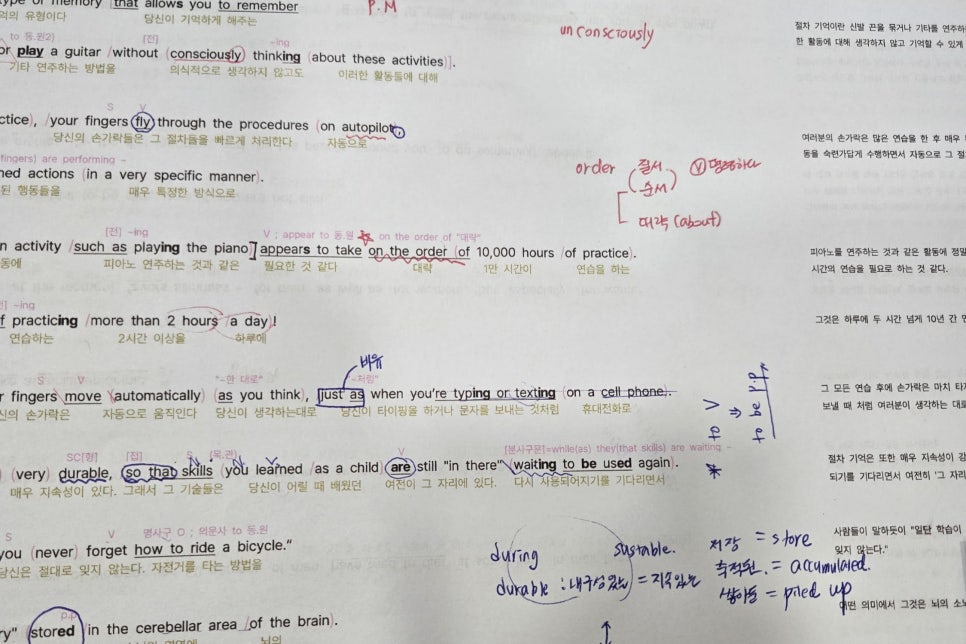 type of memory (that allows you to remember
P.M
억의 유형이다 당신이 기억하게 해주는
unconsciously
절차 기억이란 신발 끈을 묶거나 기타를 연주하
한 활동에 대해 생각하지 않고 기억할 수 있게
to 동.원2) [전] -ing
or play a guitar /without (consciously) thinking (about these activities)].
기타 연주하는 방법을 의식적으로 생각하지 않고도 이러한 활동들에 대해
S V
ctice), /your fingers fly through the procedures (on autopilot).
당신의 손가락들은 그 절차들을 빠르게 처리한다 자동으로
여러분의 손가락은 많은 연습을 한 후 매우
동을 숙련가답게 수행하면서 자동으로 그 절
fingers) are performing ~
ned actions (in a very specific manner).
된 행동들을 매우 특정한 방식으로
order 질서 순서 ⓥ명령하다
대략 (about)
[전] -ing V ; appear to 동.원 on the order of "대략"
n activity /such as playing the piano] appears to take on the order (of 10,000 hours /of practice).
동에 피아노 연주하는 것과 같은 필요한 것 같다 대략 1만 시간이 연습을 하는
피아노를 연주하는 것과 같은 활동에 정밀
시간의 연습을 필요로 하는 것 같다.
전] -ing
f practicing /more than 2 hours /a day)!
연습하는 2시간 이상을 하루에
그것은 하루에 두 시간 넘게 10년 간 연
비유
S V "~한 대로" ~처럼"
r fingers move (automatically) (as you think), just as when you're typing or texting (on a cell phone).
신의 손가락은 자동으로 움직인다 당신이 생각하는대로 당신이 타이핑을 하거나 문자를 보내는 것처럼 휴대전화로
그 모든 연습 후에 손가락은 마치 타자
보낼 때 처럼 여러분이 생각하는 대로
SC[형] [접] S (목.관) V [분사구문]=while(as) they(that skills) are waiting ~
(very) durable, (so that skills (you learned /as a child) are still "in there" (waiting to be used again).
매우 지속성이 있다. 그래서 그 기술들은 당신이 어릴 때 배웠던 여전히 그 자리에 있다. 다시 사용되어지기를 기다리면서
절차 기억은 또한 매우 지속성이 강
되기를 기다리면서 여전히 '그 자리
S V 명사구 O ; 의문사 to 동.원
you (never) forget how to ride a bicycle."
당신은 절대로 잊지 않는다. 자전거를 타는 방법을
사람들이 말하듯이 "일단 학습이
잊지 않는다."
during sustable. 저장 = store
durable : 내구성있는 = 지속있는 축적된 = accumulated.
쌓아둔 = piled up
어떤 의미에서 그것은 뇌의 소뇌
p.p
ry" (stored (in the cerebellar area /of the brain).
뇌의